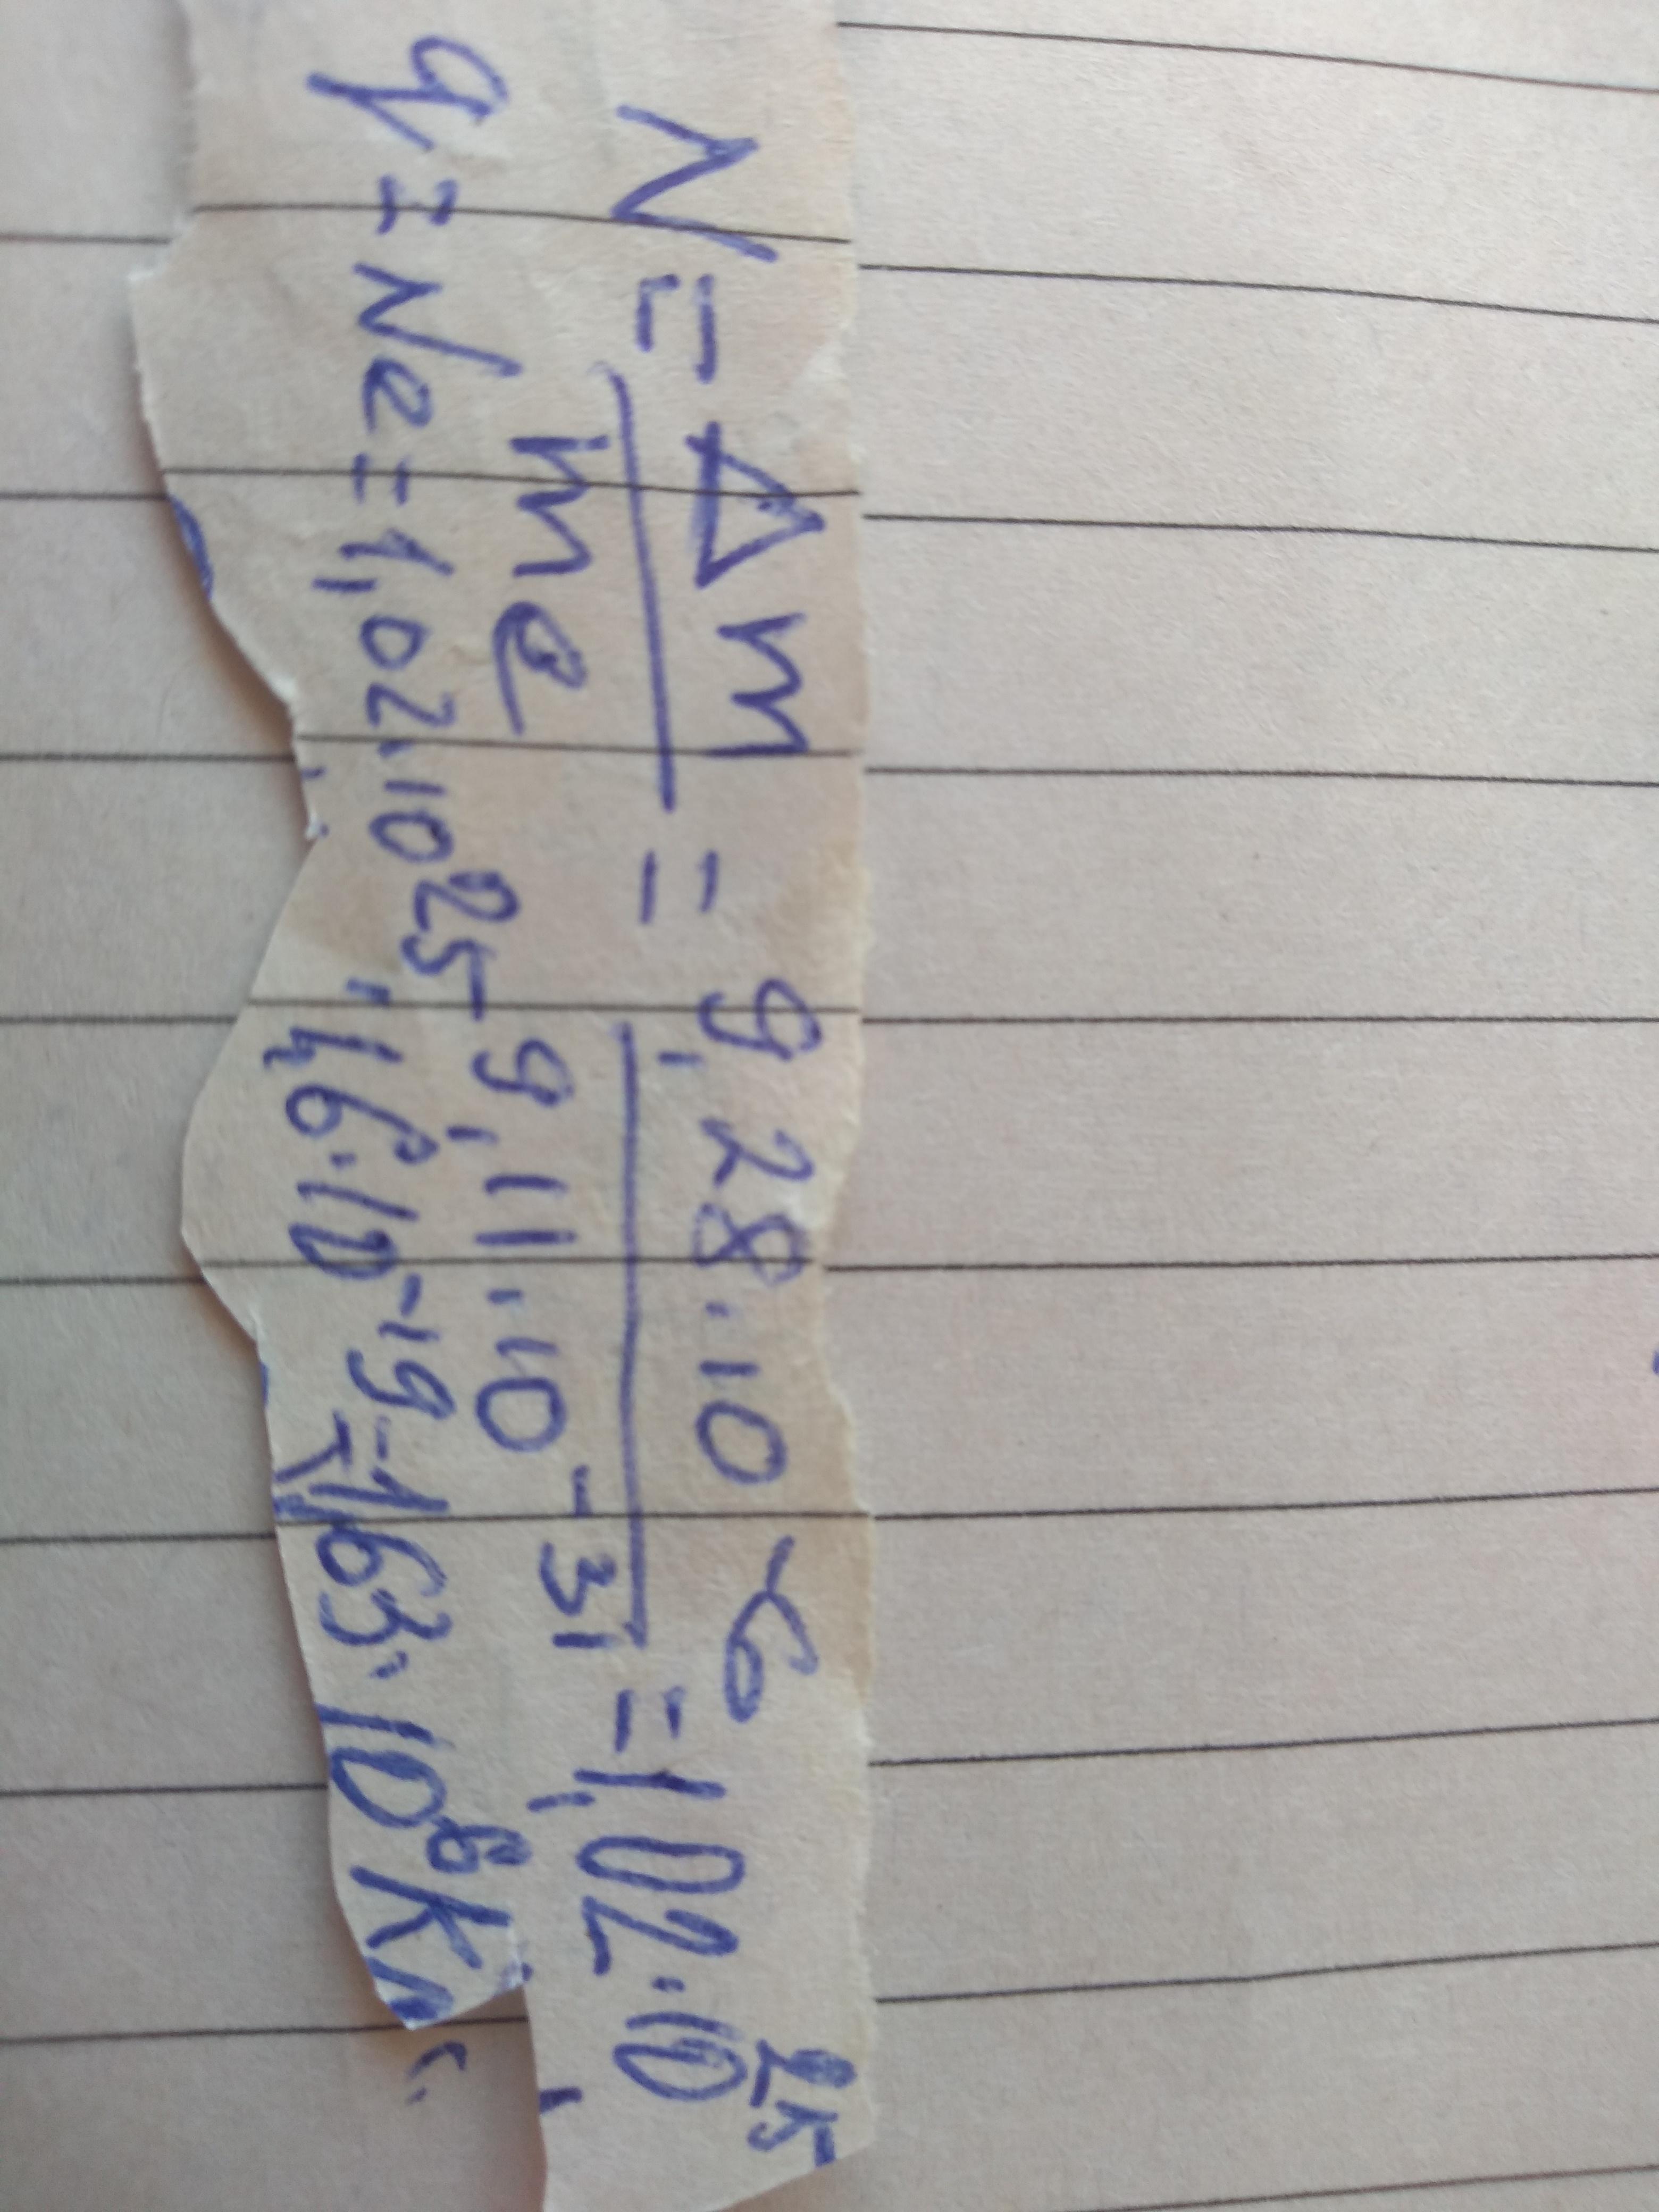 N = Δm / me = 9,28·10⁻⁶ / 9,11·10⁻³¹ = 1,02·10²⁵
q = Ne = 1,02·10²⁵·1,6·10⁻¹⁹ = 1,63·10⁶ Кл